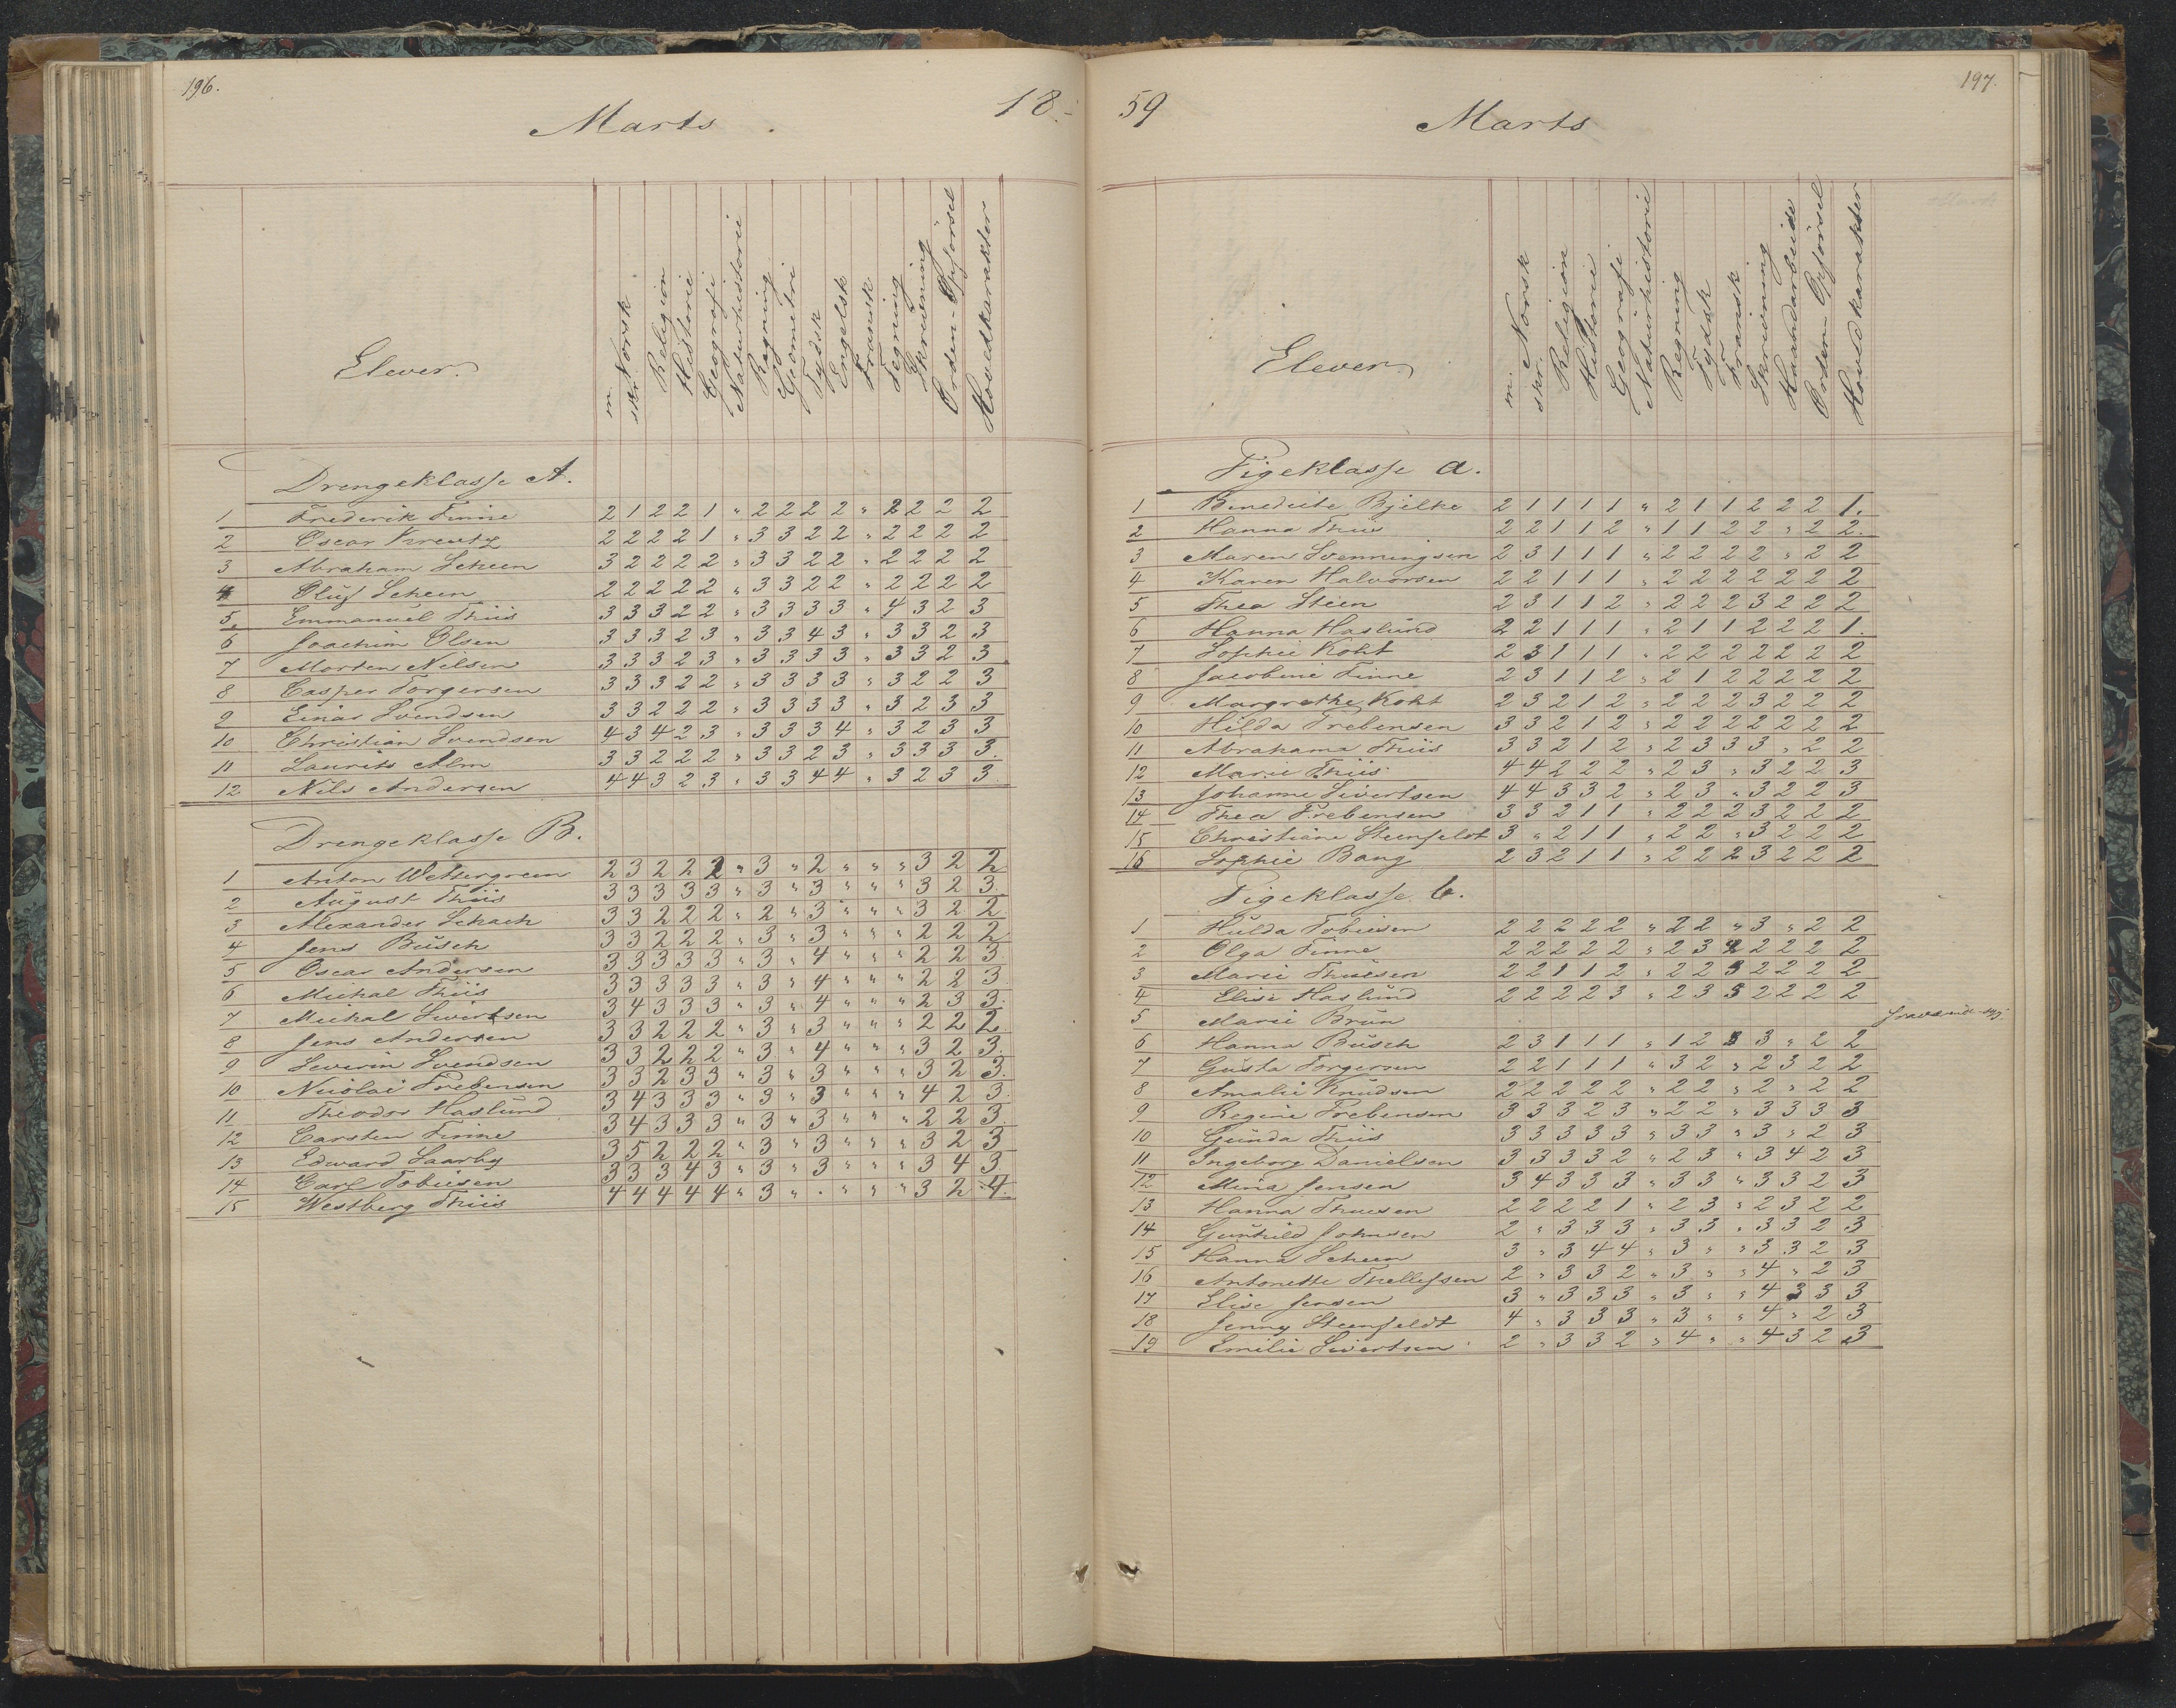 196.
Marts
18
Elever.
m. Norsk
skr.
Religion
Historie
Geografi
Naturhistorie
Regning
Geometri
Tydsk
Engelsk
Fransk
Tegning
Skrivning
Orden-Opførsel
Hovedkarakter
Drengeklasse A.
1 Frederik Finne 2 1 2 2 1 " 2 2 2 2 " 2 2 2 2
2 Oscar Kreutz 2 2 2 2 1 " 3 3 2 2 " 2 2 2 2
3 Abraham Scheen 3 2 2 2 2 " 3 3 2 2 " 2 2 2 2
4 Oluf Scheen 2 2 2 2 2 " 3 3 2 2 " 2 2 2 2
5. Emmanuel Thiis 3 3 3 2 2 " 3 3 3 3 " 4 3 2 3
6 Joachim Olsen 3 3 3 2 3 " 3 3 4 3 " 3 3 2 3
7 Morten Nilsen 3 3 3 2 3 " 3 3 3 3 " 3 3 2 3
8 Casper Torgersen 3 3 3 2 2 " 3 3 3 3 " 3 2 2 3
9 Einar Svendsen 3 3 2 2 2 " 3 3 3 3 " 3 2 3 3
10 Christian Svendsen 4 3 4 2 3 " 3 3 3 4 " 3 2 3 3
11 Laurits Alm 3 3 2 2 2 " 3 3 2 3 " 3 3 3 3.
12 Nils Andersen 4 4 3 2 3 " 3 3 4 4 " 3 2 3 3
Drengeklasse B.
1 Anton Wettergreen 2 3 2 2 2 " 3 " 2 " " " 3 2 2
2 August Thiis 3 3 3 3 3 " 3 " 3 " " " 3 2 3
3 Alexander Schach 3 3 2 2 2 " 2 " 3 " " " 3 2 2
4 Jens Büsch 3 3 2 2 2 " 3 " 3 " " " 2 2 2
5 Oscar Andersen 3 3 3 3 3 " 3 " 4 " " " 2 2 3
6 Michal Thiis 3 3 3 3 3 " 3 " 4 " " " 2 2 3
7 Michal Sivertsen 3 4 3 3 3 " 3 " 4 " " " 2 3 3
8 Jens Andersen 3 3 2 2 2 " 3 " 3 " " " 2 2 2
9 Severin Svendsen 3 3 2 2 2 " 3 " 4 " " " 3 2 3.
10 Nicolai Prebensen 3 3 2 3 3 " 3 " 3 " " " 3 2 3.
11 Theodor Haslund 3 4 3 3 3 " 3 " 3 " " " 4 2 3
12 Carsten Finne 3 4 3 3 3 " 3 " 3 " " " 2 2 3
13 Edward Saarby 3 5 2 2 2 " 3 " 3 " " " 3 2 3
14 Carl Tobiesen 3 3 3 4 3 " 3 " 3 " " " 3 4 3
15 Westberg Thiis 4 4 4 4 4 " 3 " " " " " 3 2 4.
59
Marts
197.
Elever
m. Norsk
skr.
Religion
Historie
Geografi
Naturhistorie
Regning
Tydsk
Fransk
Skrivning
Haandarbeide
Orden-Opførsel
Hovedkarakter
Pigeklasse a.
1 Benedicte Bjelke 2 1 1 1 1 " 2 1 1 2 2 2 1.
2 Hanna Thiis 2 2 1 1 2 " 1 1 2 2 " 2 2.
3 Maren Svenningsen 2 3 1 1 1 " 2 2 2 2 " 2 2
4 Karen Halvorsen 2 2 1 1 1 " 2 2 2 2 2 2 2
5 Thea Steen 2 3 1 1 2 " 2 2 2 3 2 2 2
6 Hanna Haslund 2 2 1 1 1 " 2 1 1 2 2 2 1.
7 Sophie Koht 2 3 1 1 1 " 2 2 2 2 2 2 2
8 Jacobine Finne 2 3 1 1 2 " 2 1 2 2 2 2 2
9 Margrethe Koht 2 3 2 1 2 " 2 2 2 3 2 2 2
10 Hilda Prebensen 3 3 2 1 2 " 2 2 2 2 2 2 2
11 Abrahama Thiis 3 3 2 1 2 " 2 3 3 3 " 2 2
12 Marie Thiis 4 4 2 2 2 " 2 3 " 3 2 2 3
13 Johanne Sivertsen 4 4 3 3 2 " 2 3 " 3 2 2 3
14 Thea Prebensen 3 3 2 1 1 " 2 2 2 3 2 2 2
15 Christiane Steenfeldt 3 " 2 1 1 " 2 2 " 3 2 2 2
16 Sophie Bang 2 3 2 1 1 " 2 2 2 3 2 2 2
Pigeklasse b.
1 Hulda Tobiesen 2 2 2 2 2 " 2 2 " 3 " 2 2
2 Olga Finne 2 2 2 2 2 " 2 3 2 2 2 2 2
3 Marie Thuesen 2 2 1 1 2 " 2 2 3 2 2 2 2
4 Elise Haslund 2 2 2 2 3 " 2 3 3 2 2 2 2
5 Marie Brun
6 Hanna Büsch 2 3 1 1 1 " 1 2 3 3 " 2 2
7 Gusta Torgersen 2 2 1 1 1 " 3 2 " 2 3 2 2
8 Amalie Knudsen 2 2 2 2 2 " 2 2 " 2 " 2 2
9 Regine Prebensen 3 3 3 2 3 " 2 2 " 3 3 3 3
10 Gunda Thiis 3 3 3 3 3 " 3 3 " 3 " 2 3
11 Ingeborg Danielsen 3 3 3 3 2 " 2 3 " 3 4 2 3
12 Mina Jensen 3 4 3 3 3 " 2 3 " 3 3 2 3
13 Hanna Thuesen 2 2 2 2 1 " 2 3 " 2 3 2 2
14 Gunhild Johnsen 2 " 3 3 3 " 3 3 " 3 3 2 3
15 Hanna Scheen 3 " 3 4 4 " 3 " " 3 3 2 3
16 Antonette Thellefsen 2 " 3 3 2 " 3 " " 4 " 2 3
17 Elise Jensen 3 " 3 3 3 " 3 " " 4 3 3 3
18 Jenny Steenfeldt 4 " 3 3 3 " 3 " " 4 " 2 3
19 Emilie Sivertsen 2 " 3 3 2 " 4 " " 4 3 2 3